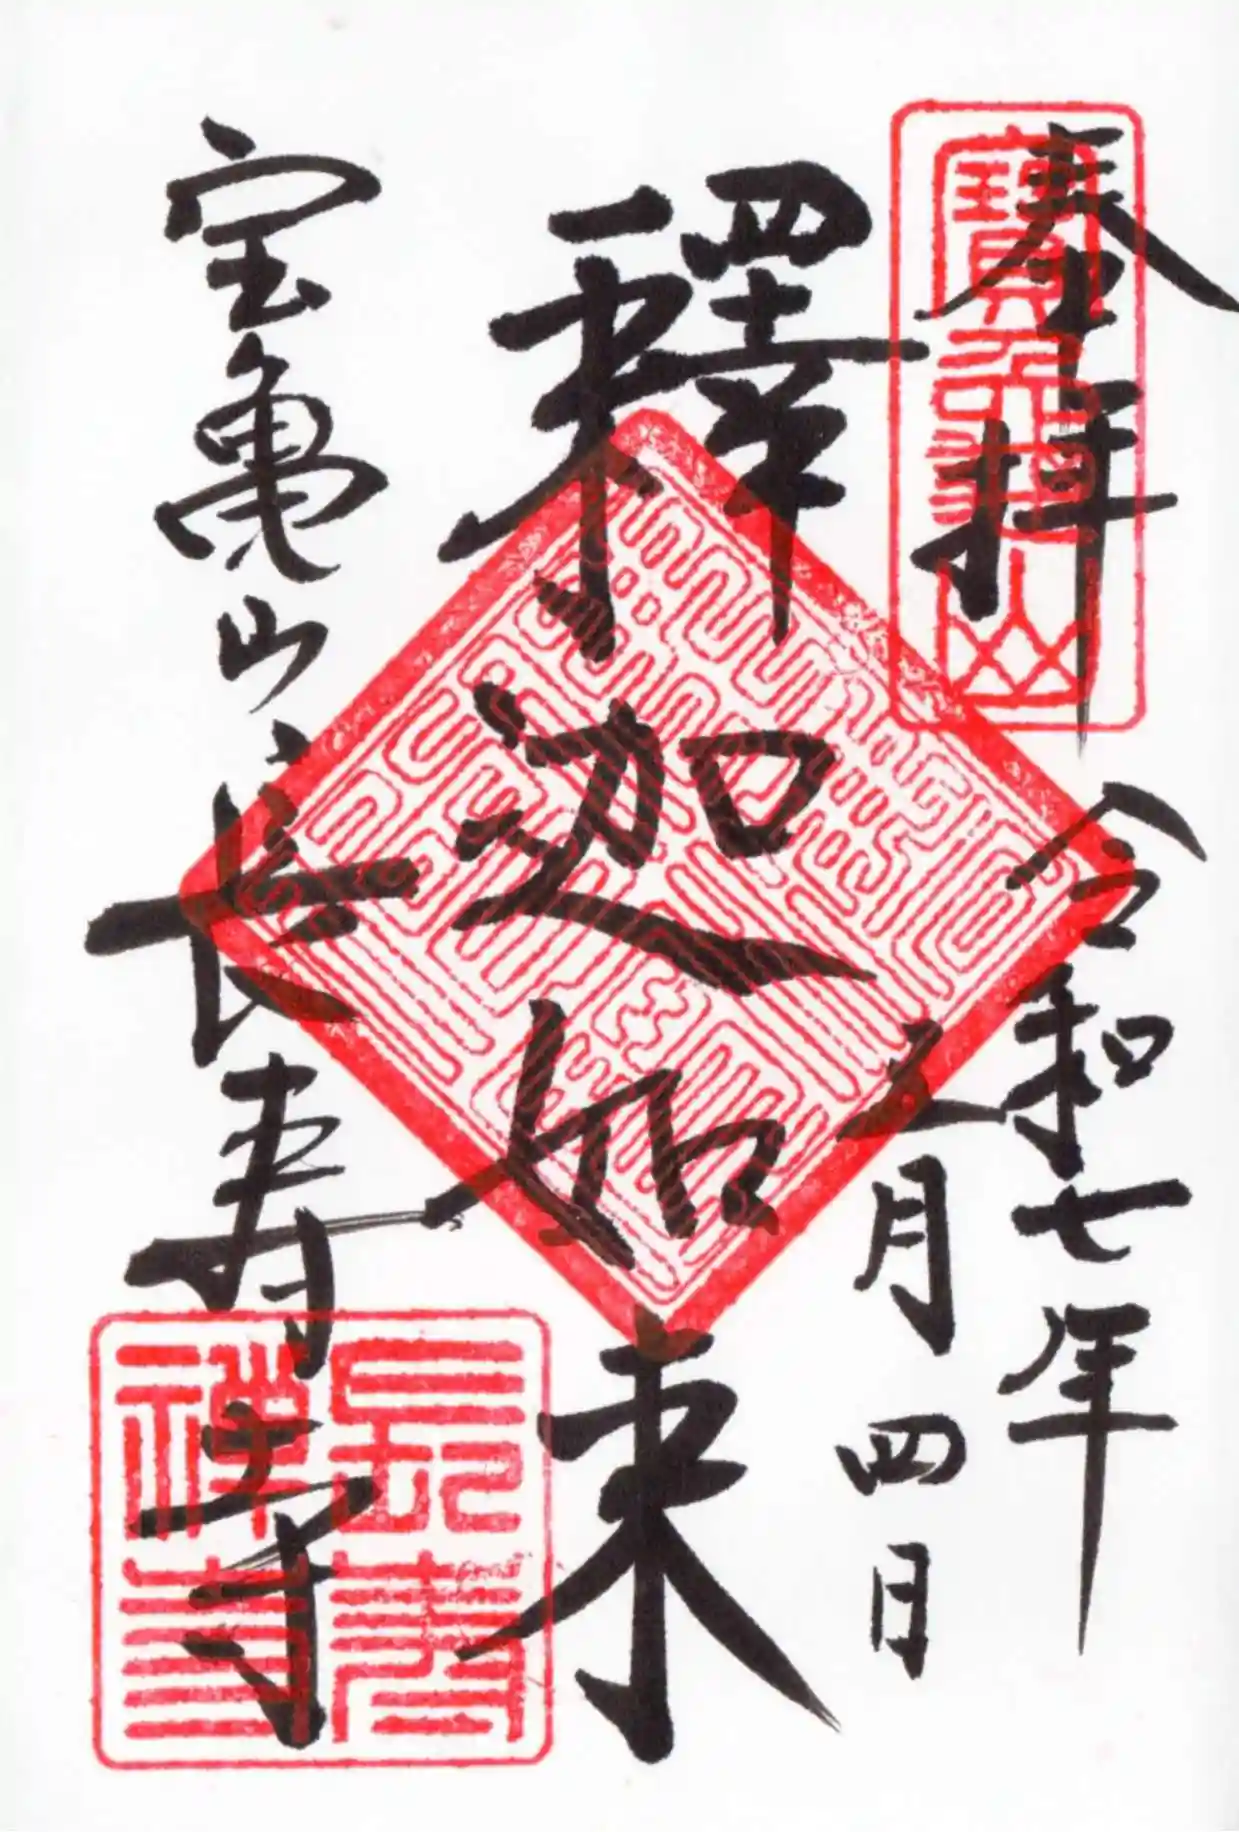 奉拝
寶龜山
令和七年
月四日
釋迦如来
宝亀山長寿寺
長壽
禪寺